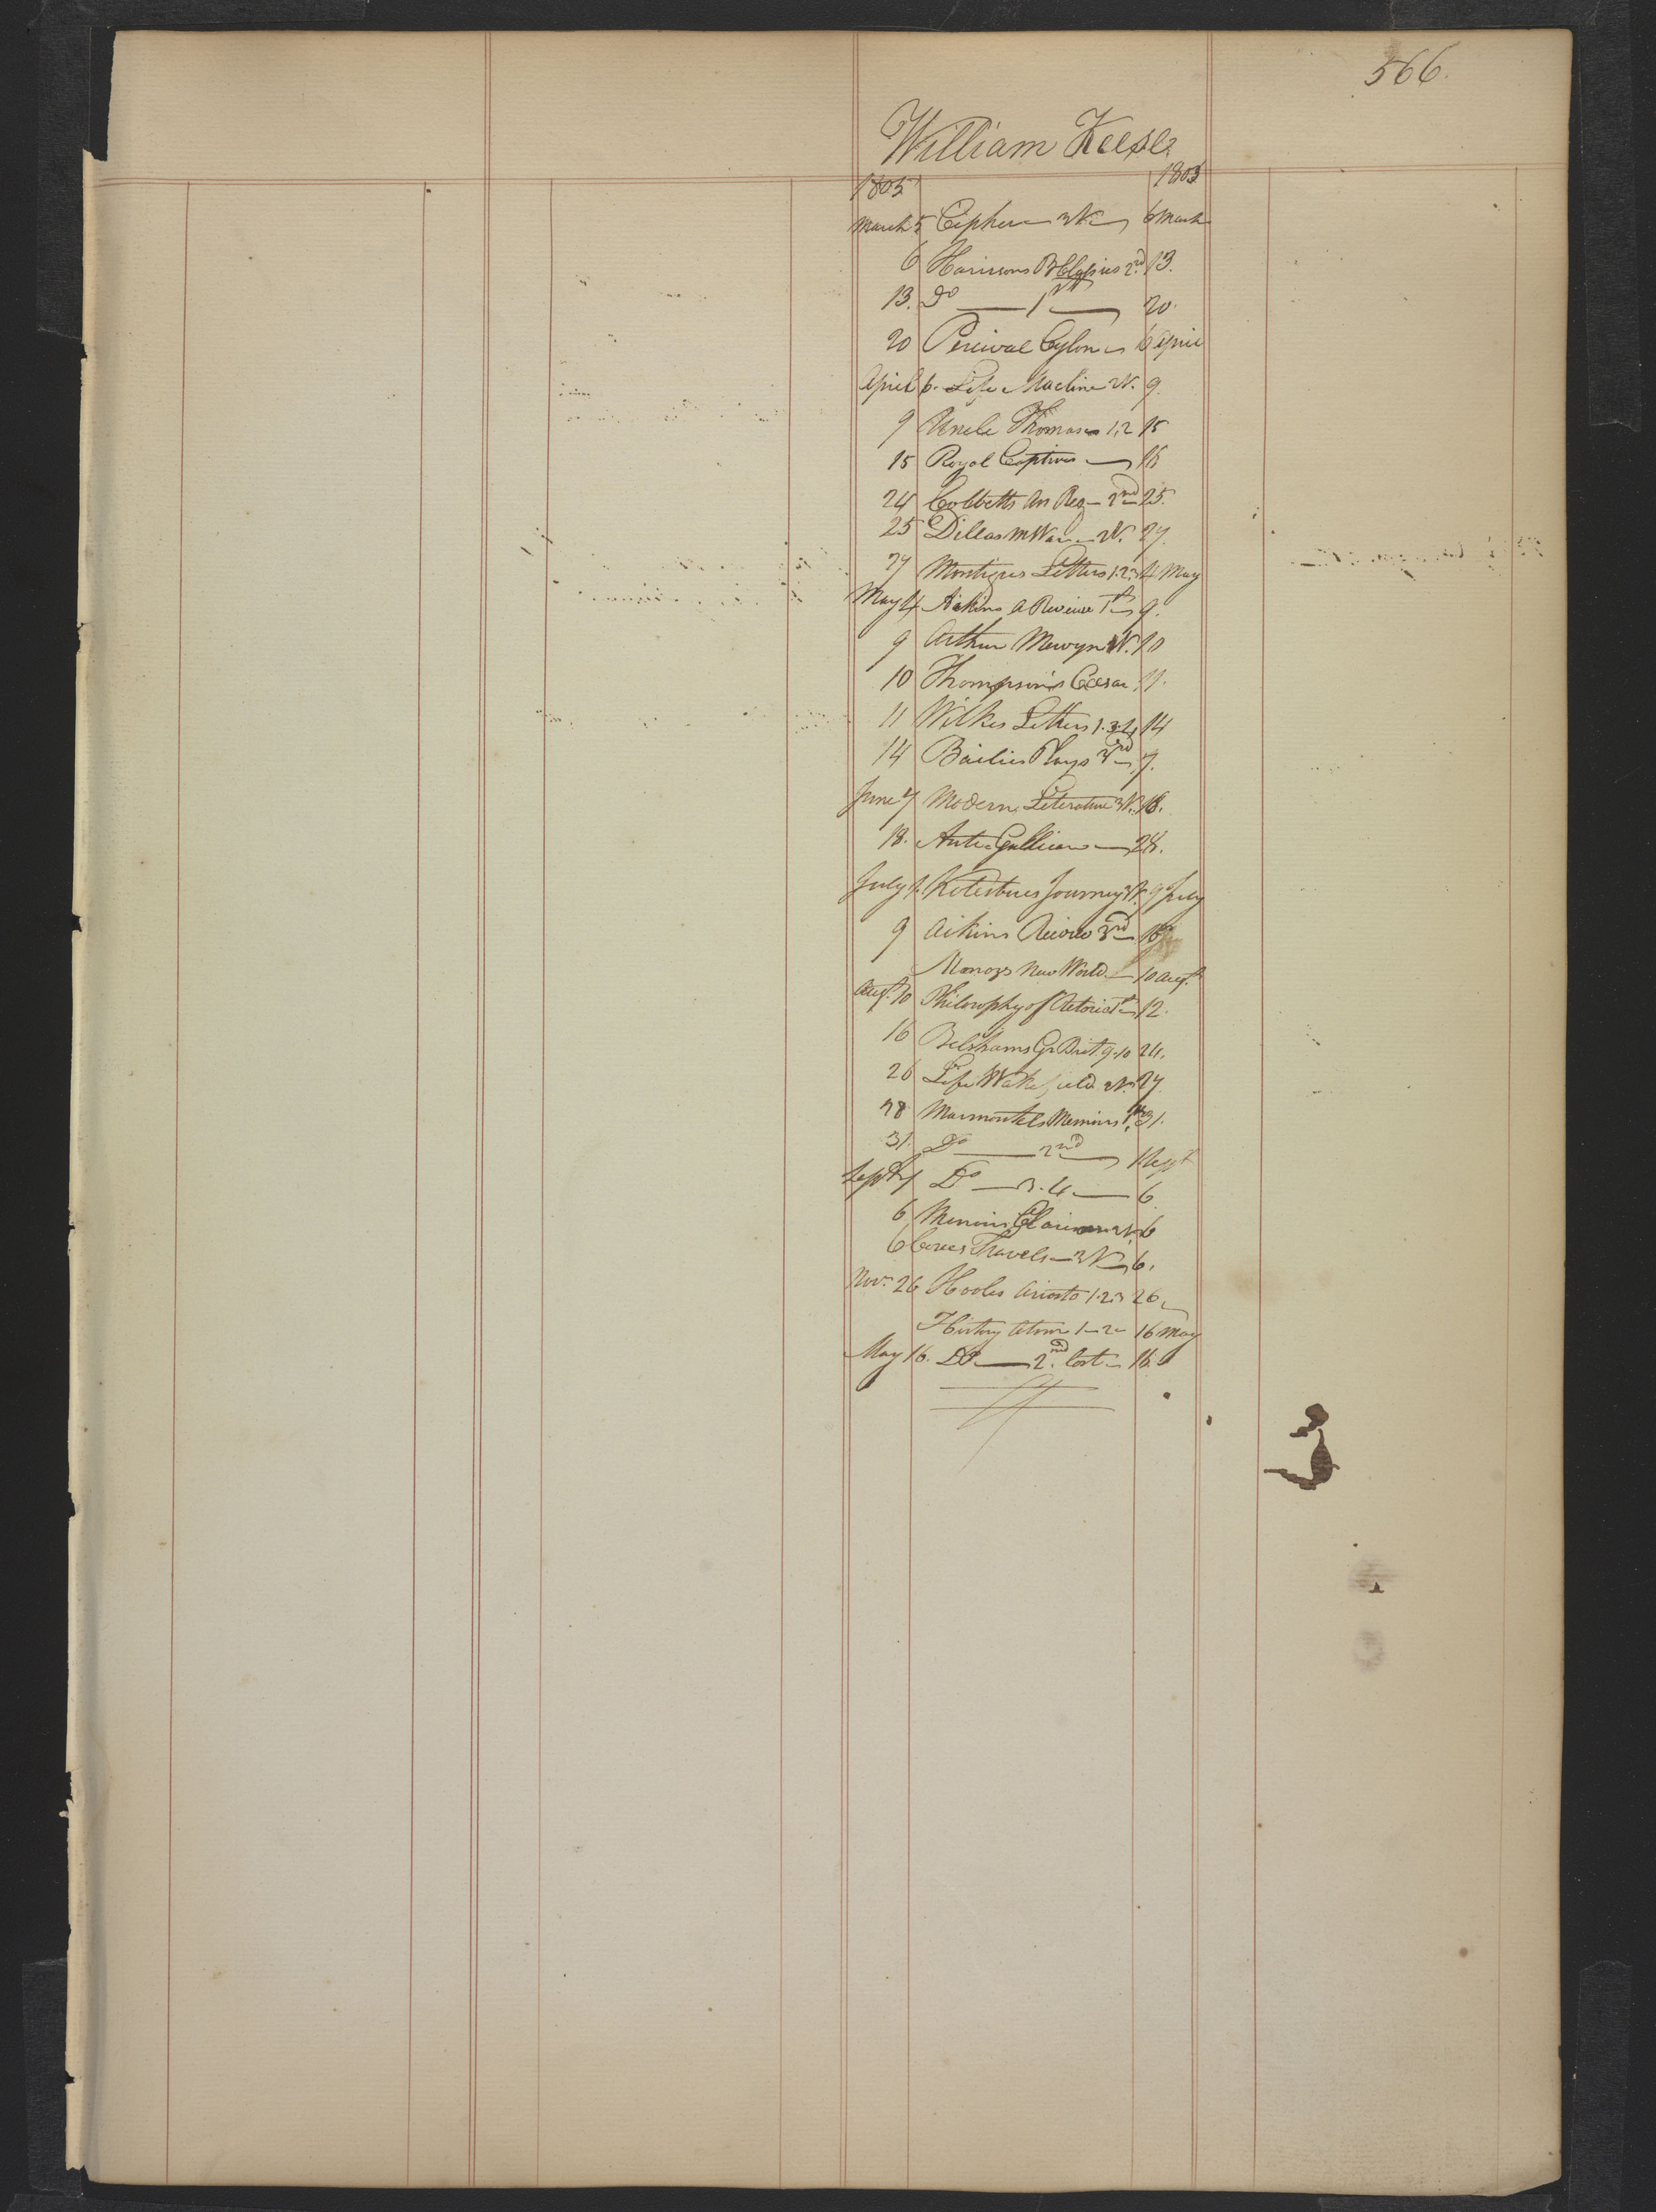 566.
William Keese
1805 1805
March 5 Cipher 3 V. 6 March
6 Harissons B Clasics 2nd 13.
13. Do 1st 20.
20 Percival Cylon 6 April
April 6. Life Macline 2 V. 9
9 Uncle Thomas 1,2 15
15 Royal Captives 16
24 Cobbetts An Reg 2nd 25.
25 Dallas M War 2 V. 27.
27 Montigues Letters 1.2.3 4 May
May 4 Aikins A Reveiw 1st 9.
9 Arthur Mervyn 2 V. 10
10 Thompsons Caesar 11.
11 Wilkes Letters 1.3.4 14
14 Bailies Plays 3rd 7.
June 7 Modern Literature 3 V. 18.
18. Anti Gallican 28.
July 1. Kotesbues Journey 3 V. 9 July
9 Aikins Reveiw 3rd 16
Monozs New World 10 Augt
Augt 10 Philosophy of Retoric 1st 12.
16 Belshams Gr Brit. 9.10 24.
26 Life Wakefield 2 V. 27
28 Marmontels Memoirs 1st 31.
31. Do 2nd 1 Sept
Sept 1 Do 3.4 6
6 Memoirs 2 V. 6
6 Carrs Travels 3 V. 6.
Nov. 26 Hooles Ariosto 1.2.3 26
History 1 2 16 May
May 16. Do 2nd lost 16.